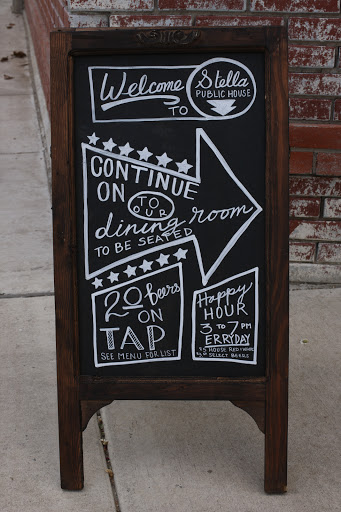 Welcome
TO
Stella
PUBLIC HOUSE
CONTINUE
ON TO OUR
dining room
TO BE SEATED
20 beers
ON
TAP
SEE MENU FOR LIST
Happy
HOUR
3 TO 7 PM
ERRYDAY
$5 HOUSE RED
SELECT BEERS